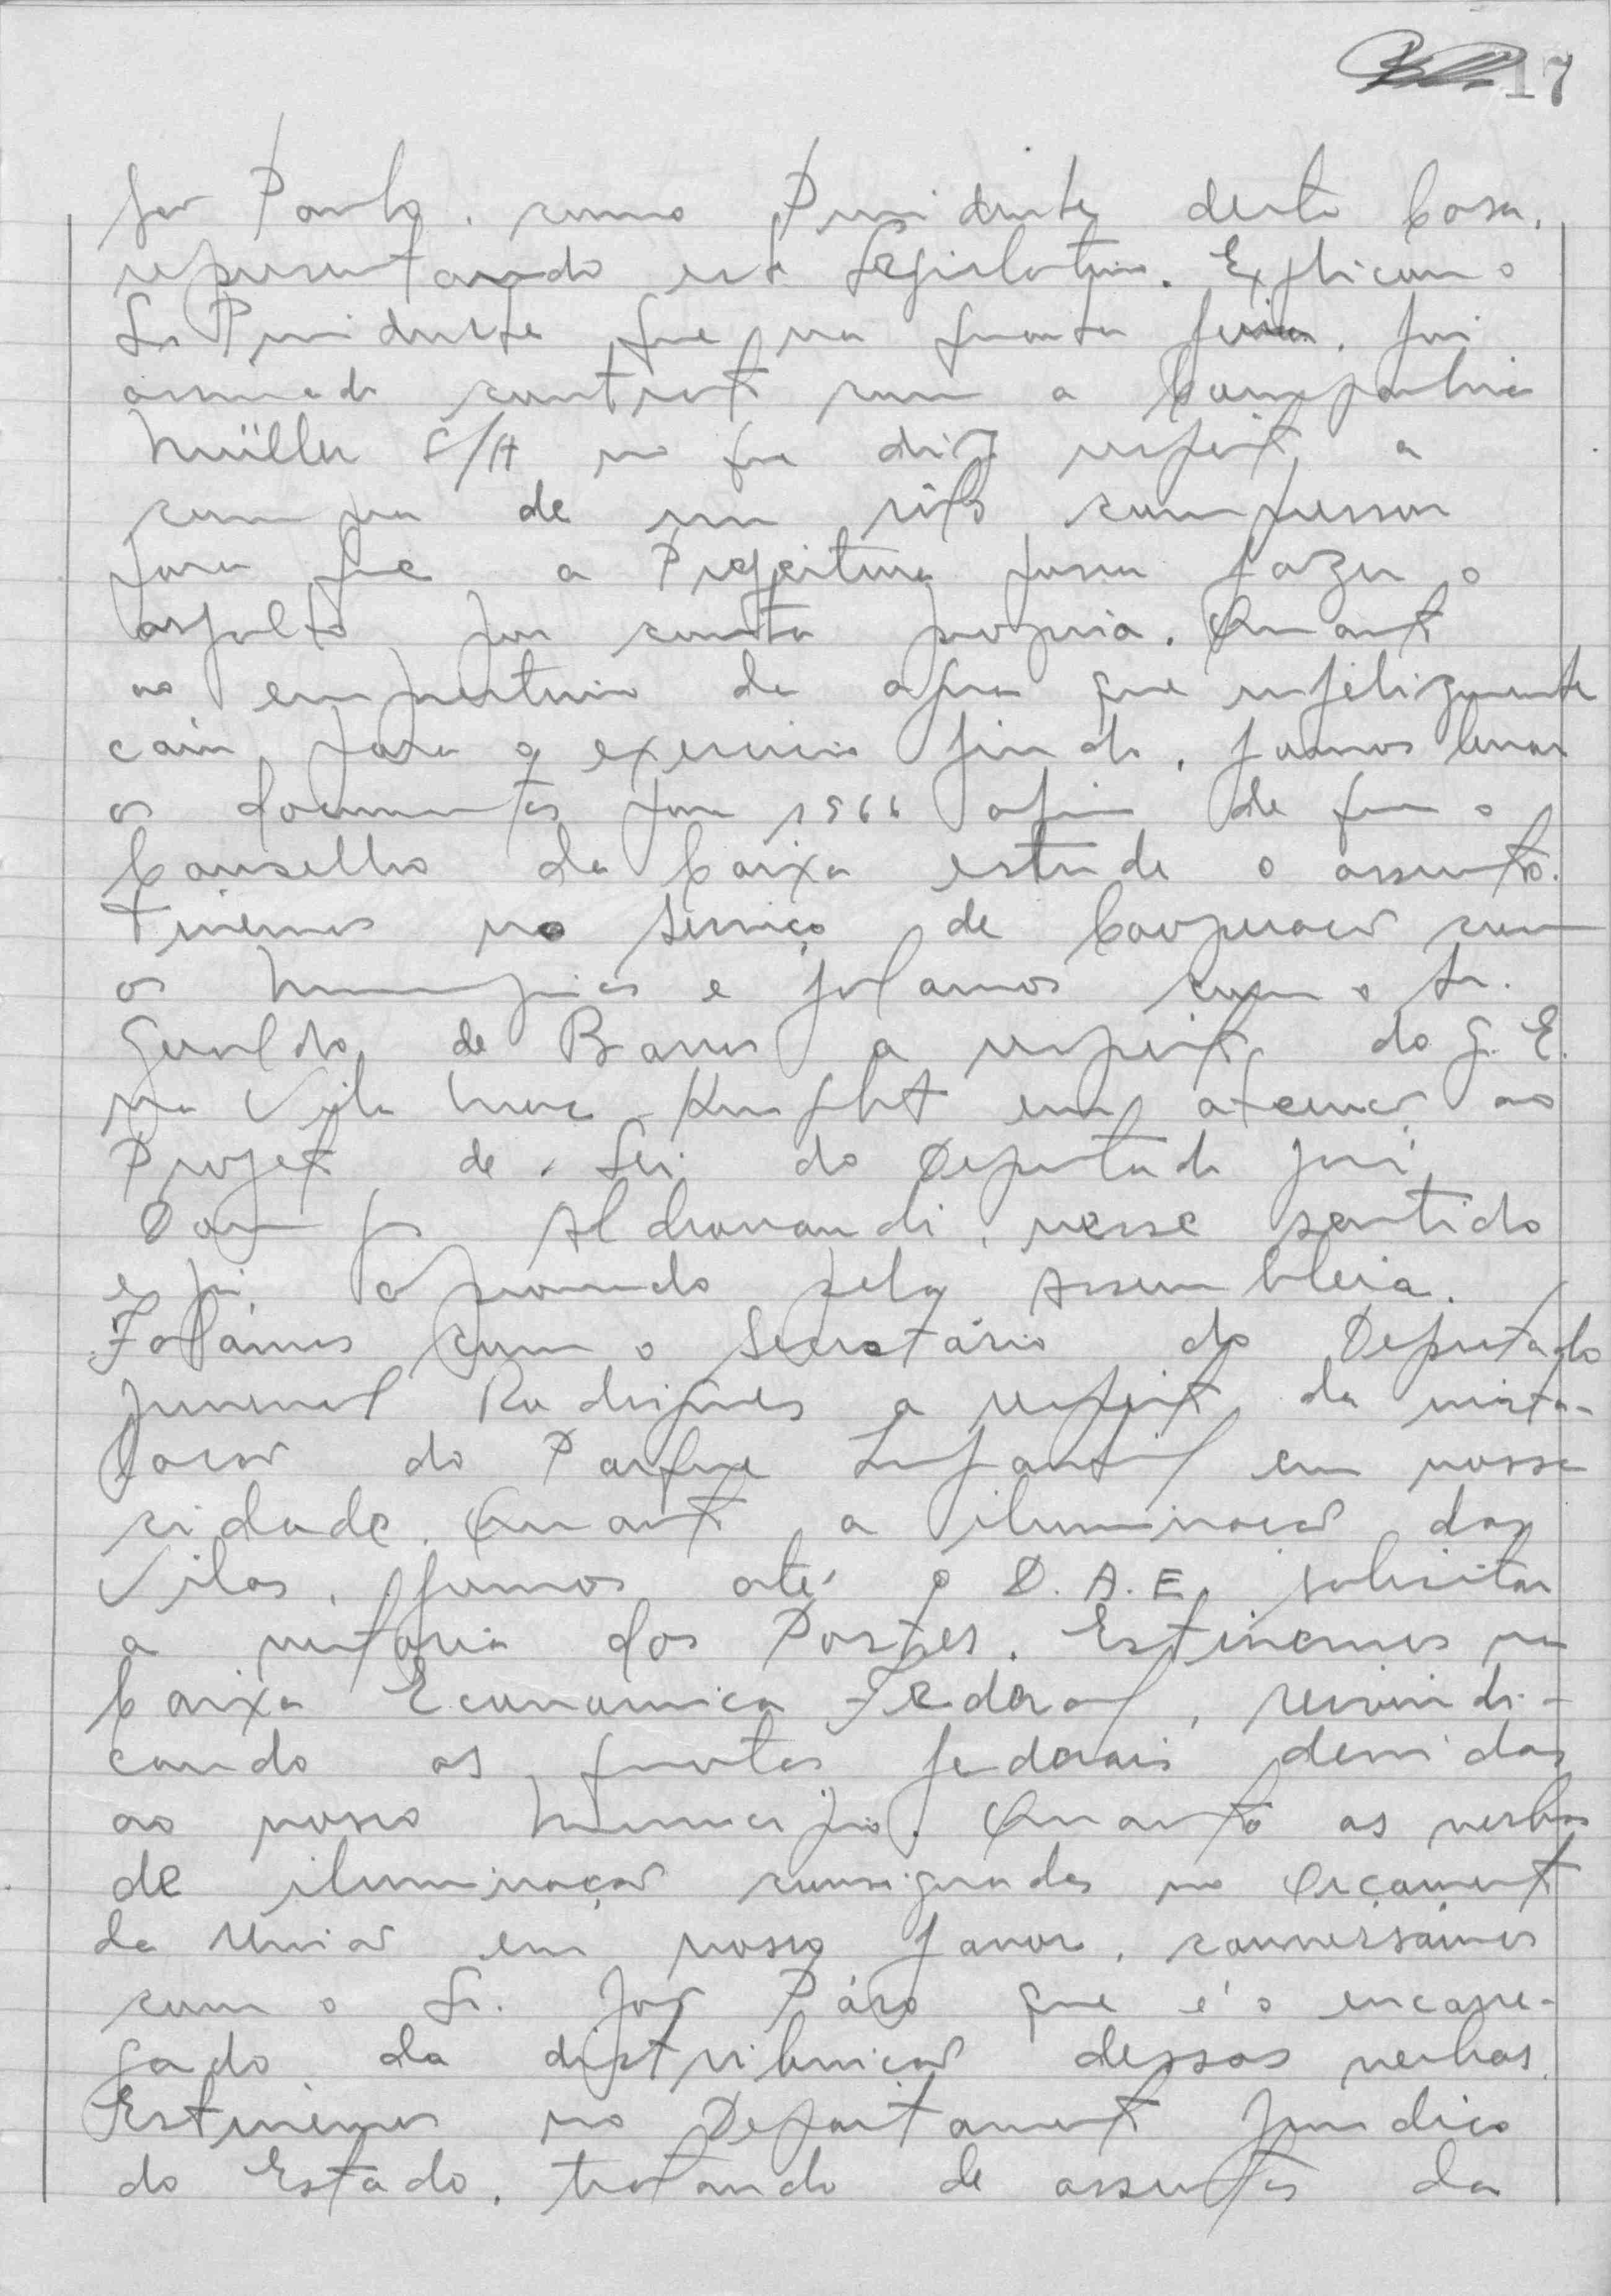 17
São Paulo, como Presidente desta Casa,
representando este Legislativo. Explicou o
Sr. Presidente que na quarta feira, foi
assinado contrato com a Companhia
Müller S/A no que diz respeito a
compra de um rôlo compressor
para que a Prefeitura possa fazer o
asfalto por conta propria. Quanto
ao emprestimo da agua que infelizmente
caiu para o exercicio findo, fomos levar
os documentos para 1966 afim de que o
Conselho da Caixa estude o assunto.
Tivemos no Serviço de Cooperação com
os Municipios e falamos com o Sr.
Geraldo de Barros a respeito do G. E.
na Vila Knight em atenção ao
Projeto de Lei do Deputado José
Domingos Aldrovandi, nesse sentido
e foi aprovado pela Assembleia.
Falámos com o Secretário do Deputado
Juvenal Rodrigues a respeito da insta-
lação do Parque Infantil em nossa
cidade. Quanto a iluminação das
Vilas, fomos até o D. A. E. solicitar
a vistoria dos Postes. Estivemos na
Caixa Economica Federal, reivindi-
cando as quotas federais devidas
ao nosso Municipio. Quanto as verbas
de iluminação consignadas no Orçamento
da União em nosso favor, conversámos
com o Sr. José Páro que é o encarre-
gado da distribuição dessas verbas.
Estivémos no Departamento Juridico
do Estado, tratando de assuntos da